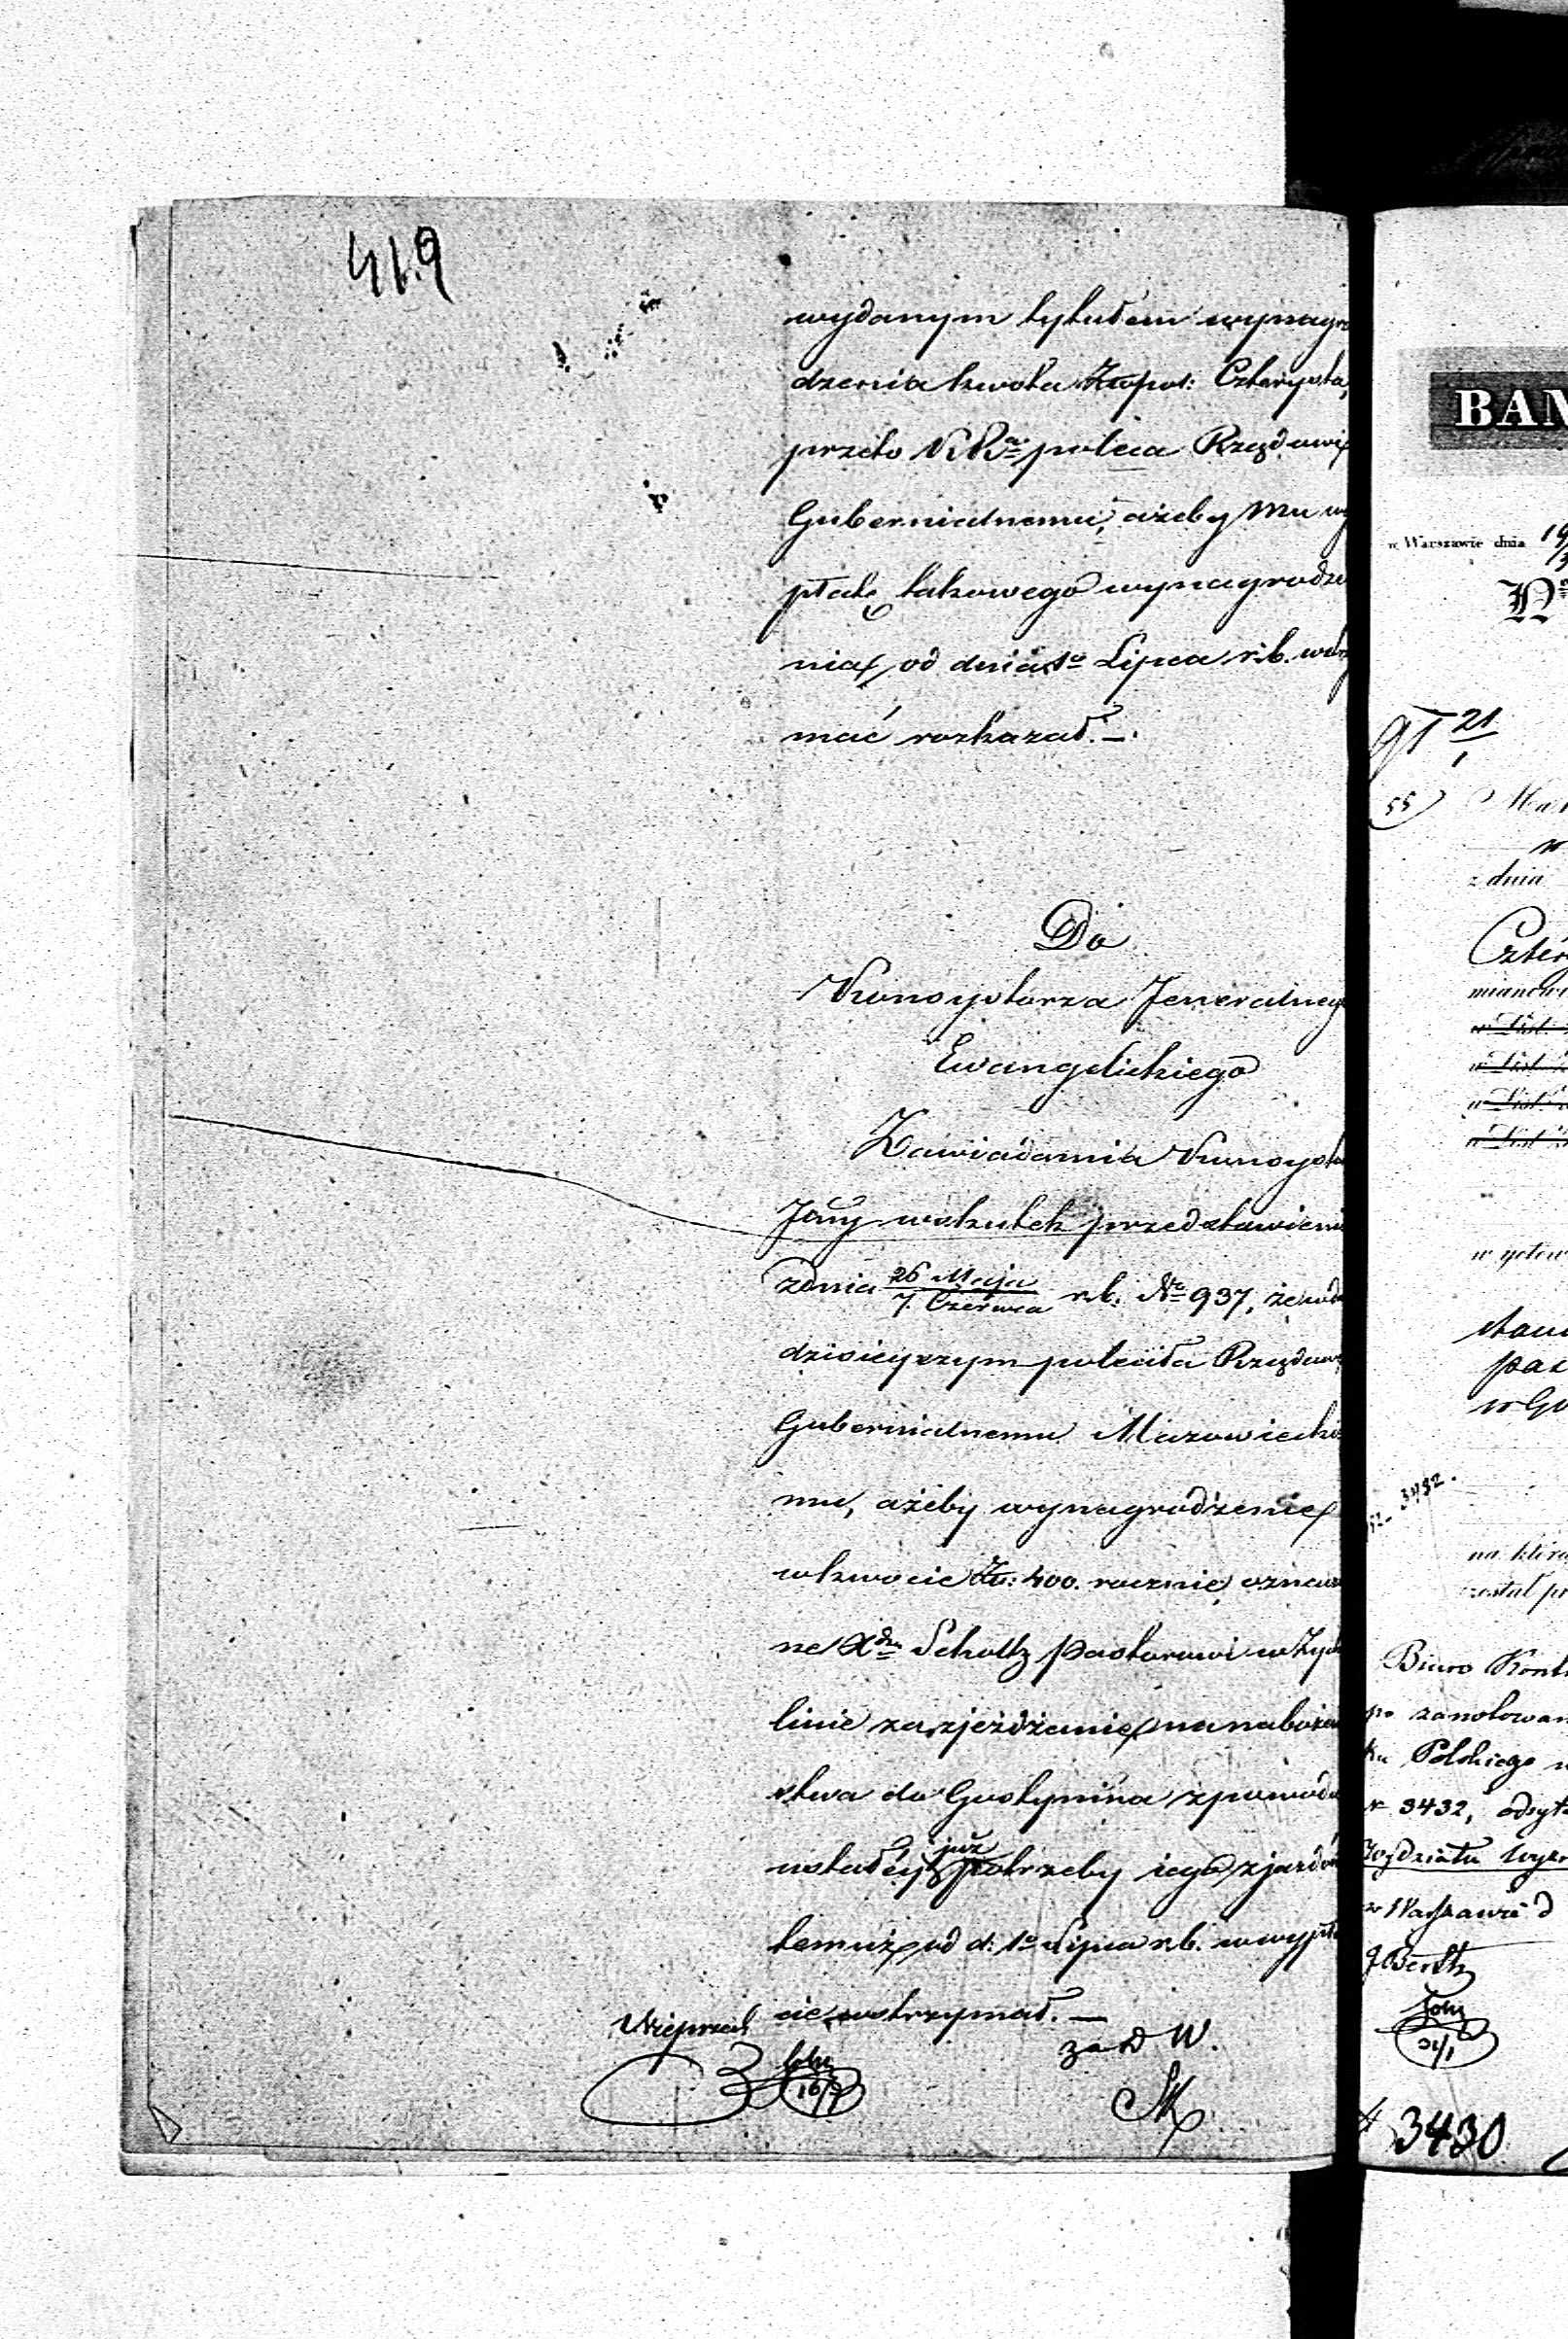 419
wydanym tytułem wynagro
dzenia kwota Złopol: Czterysta,
przeto poleca Rządowi
Gubernialnemu, ażeby Mu wy
płatę takowego wynagrodze
nia, od dnia 1º Lipca r.b. wstrzy
mać rozkazał. —
Do
Konsystorza Jeneralnego
Ewangelickiego
Zawiadamia Konsysto
Jalny wskutek przedstawieni
z dnia 26 Maja / 7 Czerwca r.b. Nº 937, że
dzisieyszym poleciła Rządowi
Gubernialnemu Mazowiecki
mu, ażeby wynagrodzenie
w kwocie Zł: 400. rocznie, oznaczo
ne Xdzu Scholtz Pastorowi w Żych
linie za zjeżdżanie na nabożeń
stwa do Gostynina z powodu
ustałéy już potrzeby iego zjazdów
temuż od d: 1º Lipca r.b. w wypła
cie wstrzymał. —
za D W.
16/7
BAN
w Warszawie dnia 19
Nº
21/1
55
z dnia
Czter
mianowi
w List
w List
w List
w List
w gotow
pas
w Go
3432.
na któr
został pr
Biuro Kont
po zanotowan
ku Polskiego w
N 3432, odsył
Wydziału
w Warszawie d
21/1
3430